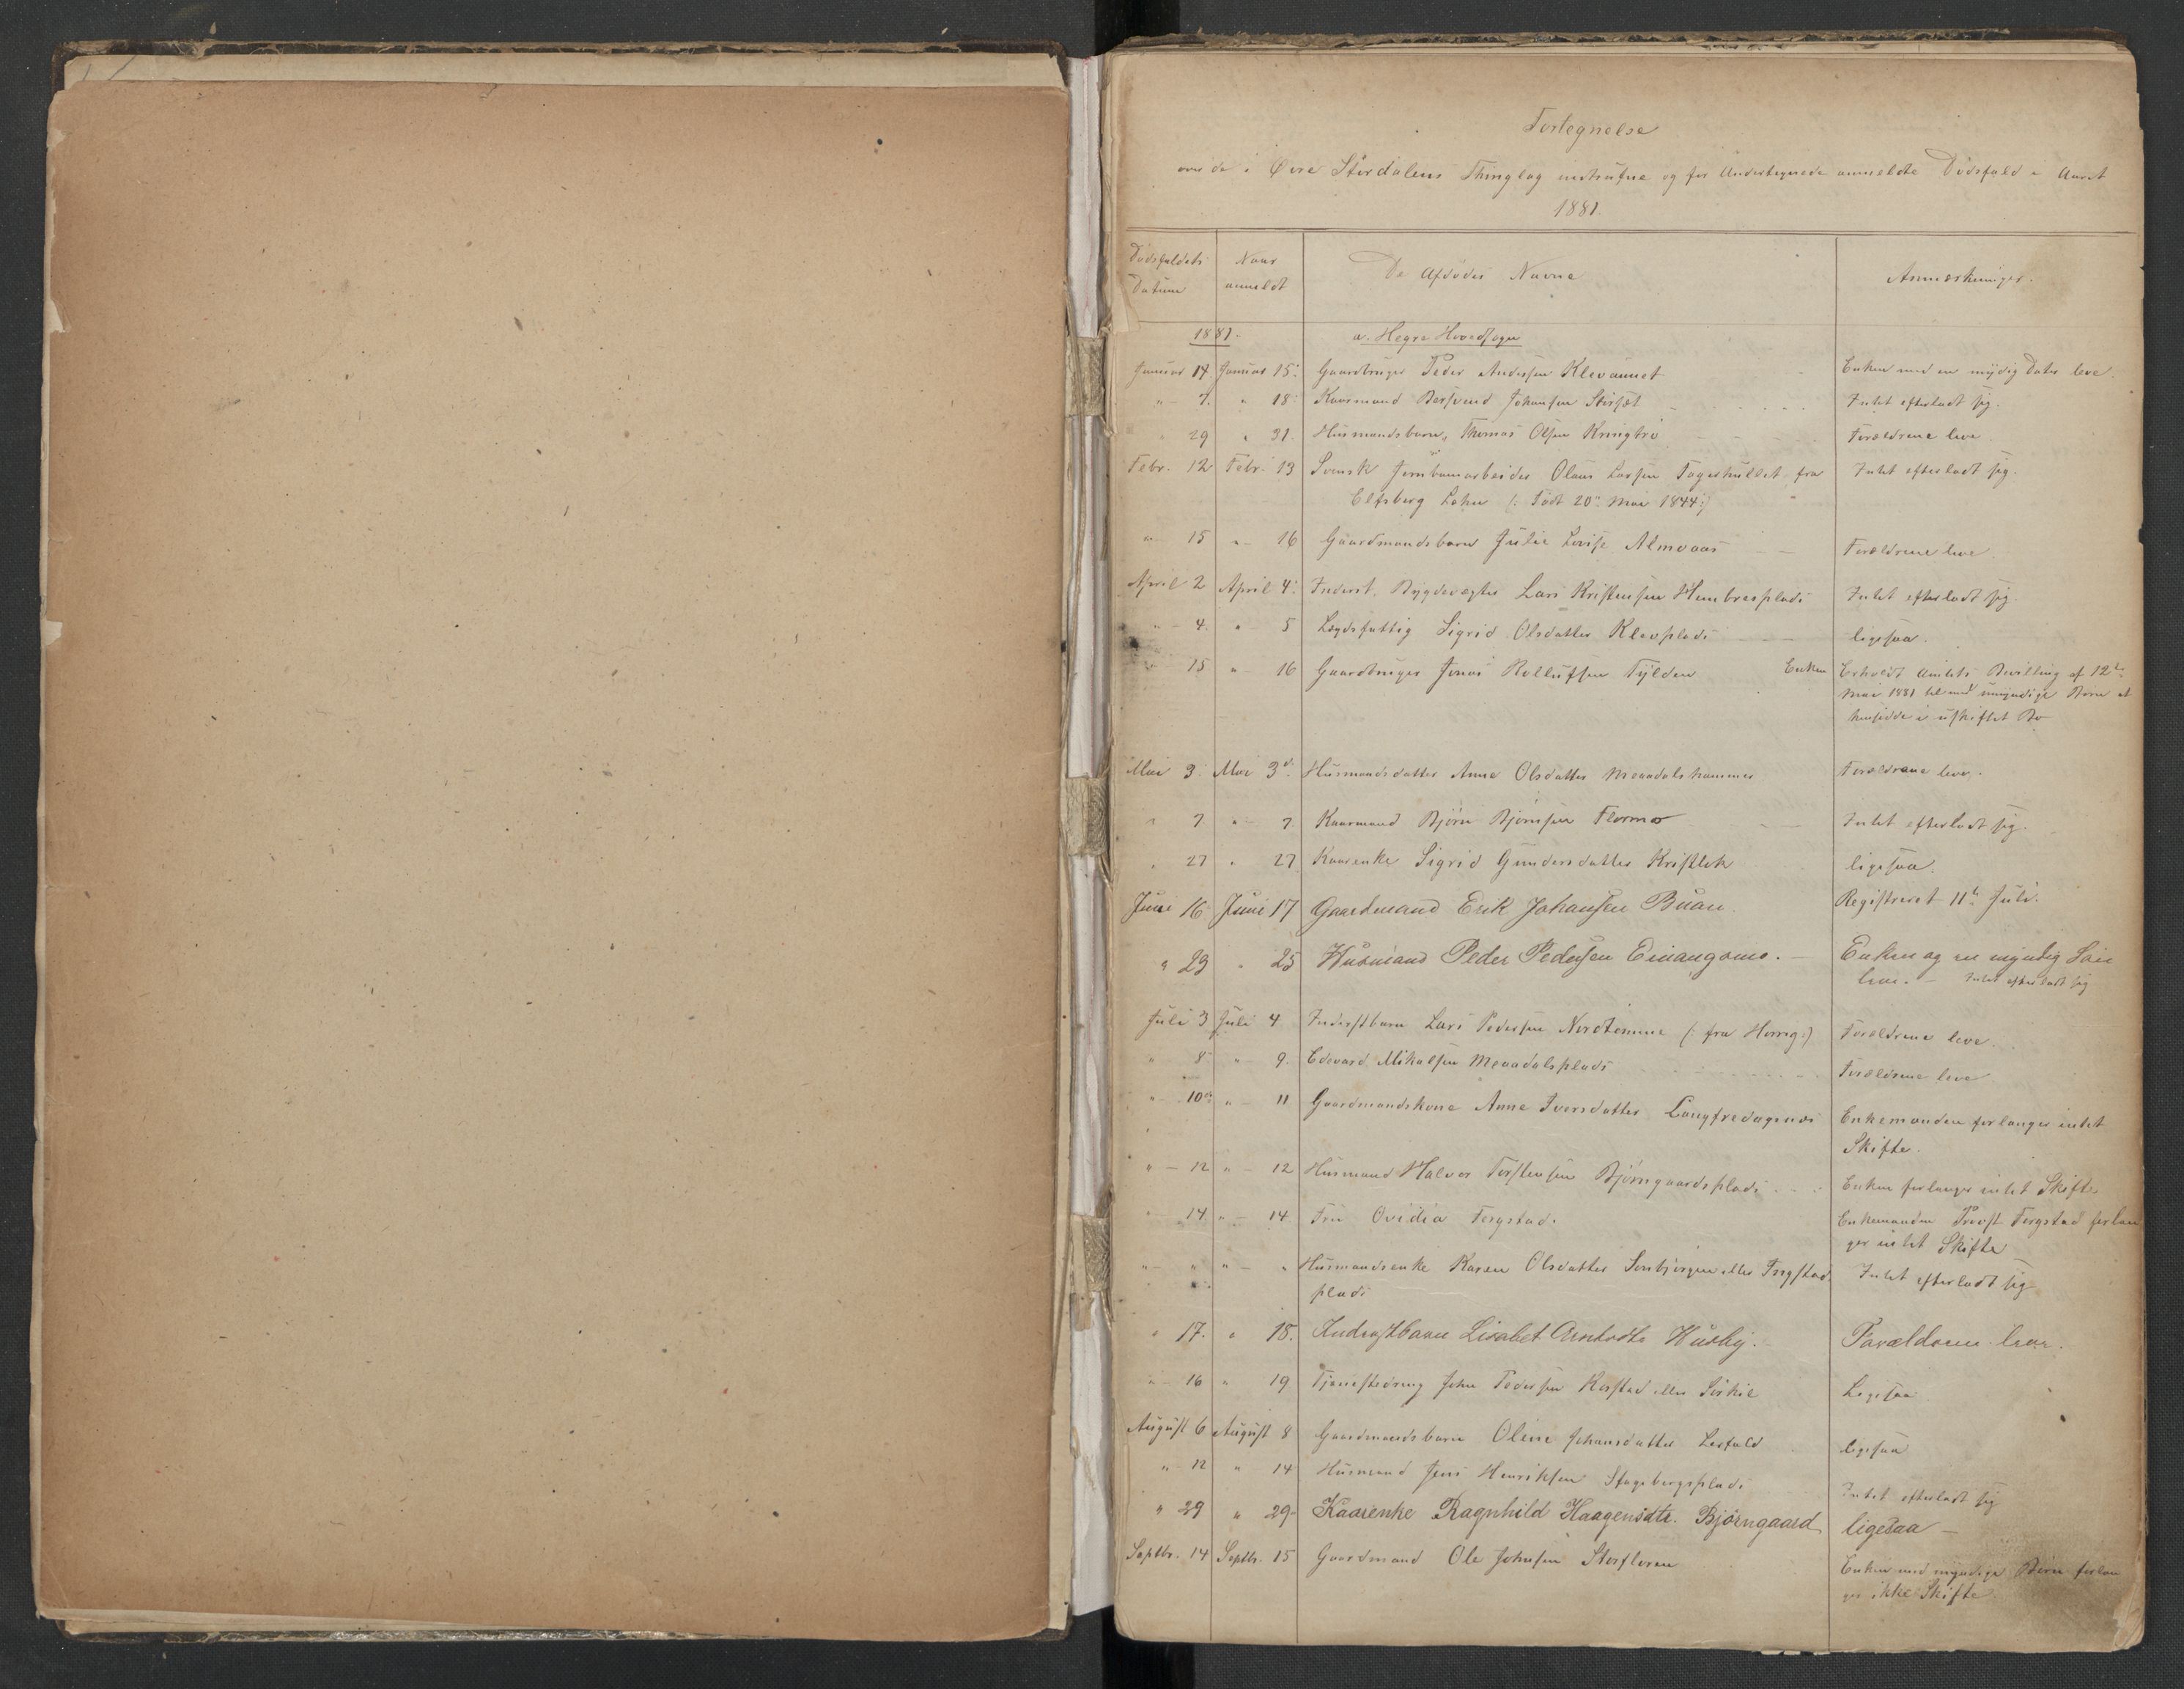 Fortegnelse
over de i Øvre Størdalens Thinglag indtrufne og for Undertegnede anmeldte Dødsfald i Aaret
1881.
Dødsfaldets Datum
Naar anmeldt
De Afdødes Navne
Anmærkninger.
1881.
a. Hegre Hovedsogn
Januar 14. Januar 15. Gaardbruger Peder Andersen Klevaunet Enken med en myndig Dater leve.
" 7. " 18. Kaarmand Bersvend Johansen Intet efterladt sig.
" 29 " 31. Husmandsbarn, Thomas Olsen Forældrene leve.
Febr. 12 Febr. 13 Svensk Jernbanearbeider Olaus Larsen Fagerhultet, fra Intet efterladt sig.
Elfsborg Lehn (: Født 20de Mai 1844 :)
" 15 " 16 Gaardmandsbarn Julie Lovise Almvaas Forældrene leve.
April 2 April 4. Inderst, Bygdevægter Lars Kristensen Hembresplads Intet efterladt sig.
" 4. " 5 Lægdsfattig Sigrid Olsdatter Klevplads ligesaa.
" 15 " 16 Gaardbruger Jonas Rollufsen Tylden Enken Erholdt Amtets Bevilling af 12te
Mai 1881 til med umyndige Børn at
hensidde i uskiftet Bo
Mai 3. Mai 3die Husmandsdatter Anne Olsdatter Meraadalshammer Forældrene leve.
" 7 " 7. Kaarmand Bjørn Bjørnsen Flormo Intet efterladt sig.
" 27 " 27 Kaarenke Sigrid Gundersdatter ligesaa.
Juni 16 Juni 17 Gaardmand Erik Johansen Buan Registreret 11te Juli.
" 23 " 25 Husmand Peder Pedersen Einangsmo. Enken og en myndig Søn
leve. – Intet efterladt sig
Juli 3 Juli 4 Inderstbarn Lars Pedersen (: fra :) Forældrene leve.
" 8 " 9. Edevard Mikalsen Meraadalsplads Forældrene leve
" 10de " 11 Gaardmandskone Anne Iversdatter Langfredagsnæs Enkemanden forlanger intet
Skifte.
" 12 " 12 Husmand Halvor Torstensen Bjørngaardsplads Enken forlanger intet Skifte
" 14 " 14 Fru Ovidia Fergstad. Enkemanden Provst Fergstad forlan
ger intet Skifte
" " " " Husmandsenke Karen Olsdatter eller Fergstad Intet efterladt sig
plads
" 17. " 18. Inderstbarn Lisabet Arntsdtr Husby. Forældrene leve.
" 16 " 19 Tjenestedreng John Pedersen eller Ligesaa
August 6 August 8 Gaardmandsbarn Oline Johansdatter ligesaa
" 12 " 14 Husmand Jens Henriksen Intet efterladt sig
" 29 " 29 Kaarenke Ragnhild Haagensdtr. Bjørngaard ligesaa –
Septbr. 14 Septbr. 15 Gaardmand Ole Johnsen Storfloren Enken med myndige Børn forlan
ger ikke Skifte